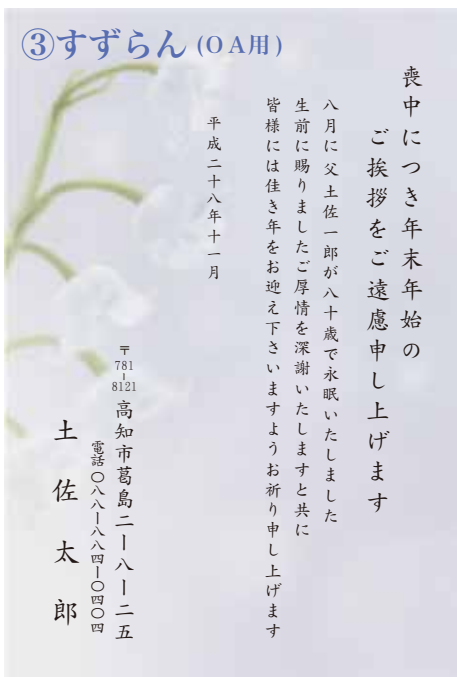 ③すずらん(OA用)
喪中につき年末年始の
ご挨拶をご遠慮申し上げます
八月に父土佐一郎が八十歳で永眠いたしました
生前に賜りましたご厚情を深謝いたしますと共に
皆様には佳き年をお迎え下さいますようお祈り申し上げます
平成二十八年十一月
〒781-8121 高知市葛島二ー八ー二五
電話〇八八ー八八四ー〇四〇四
土佐太郎